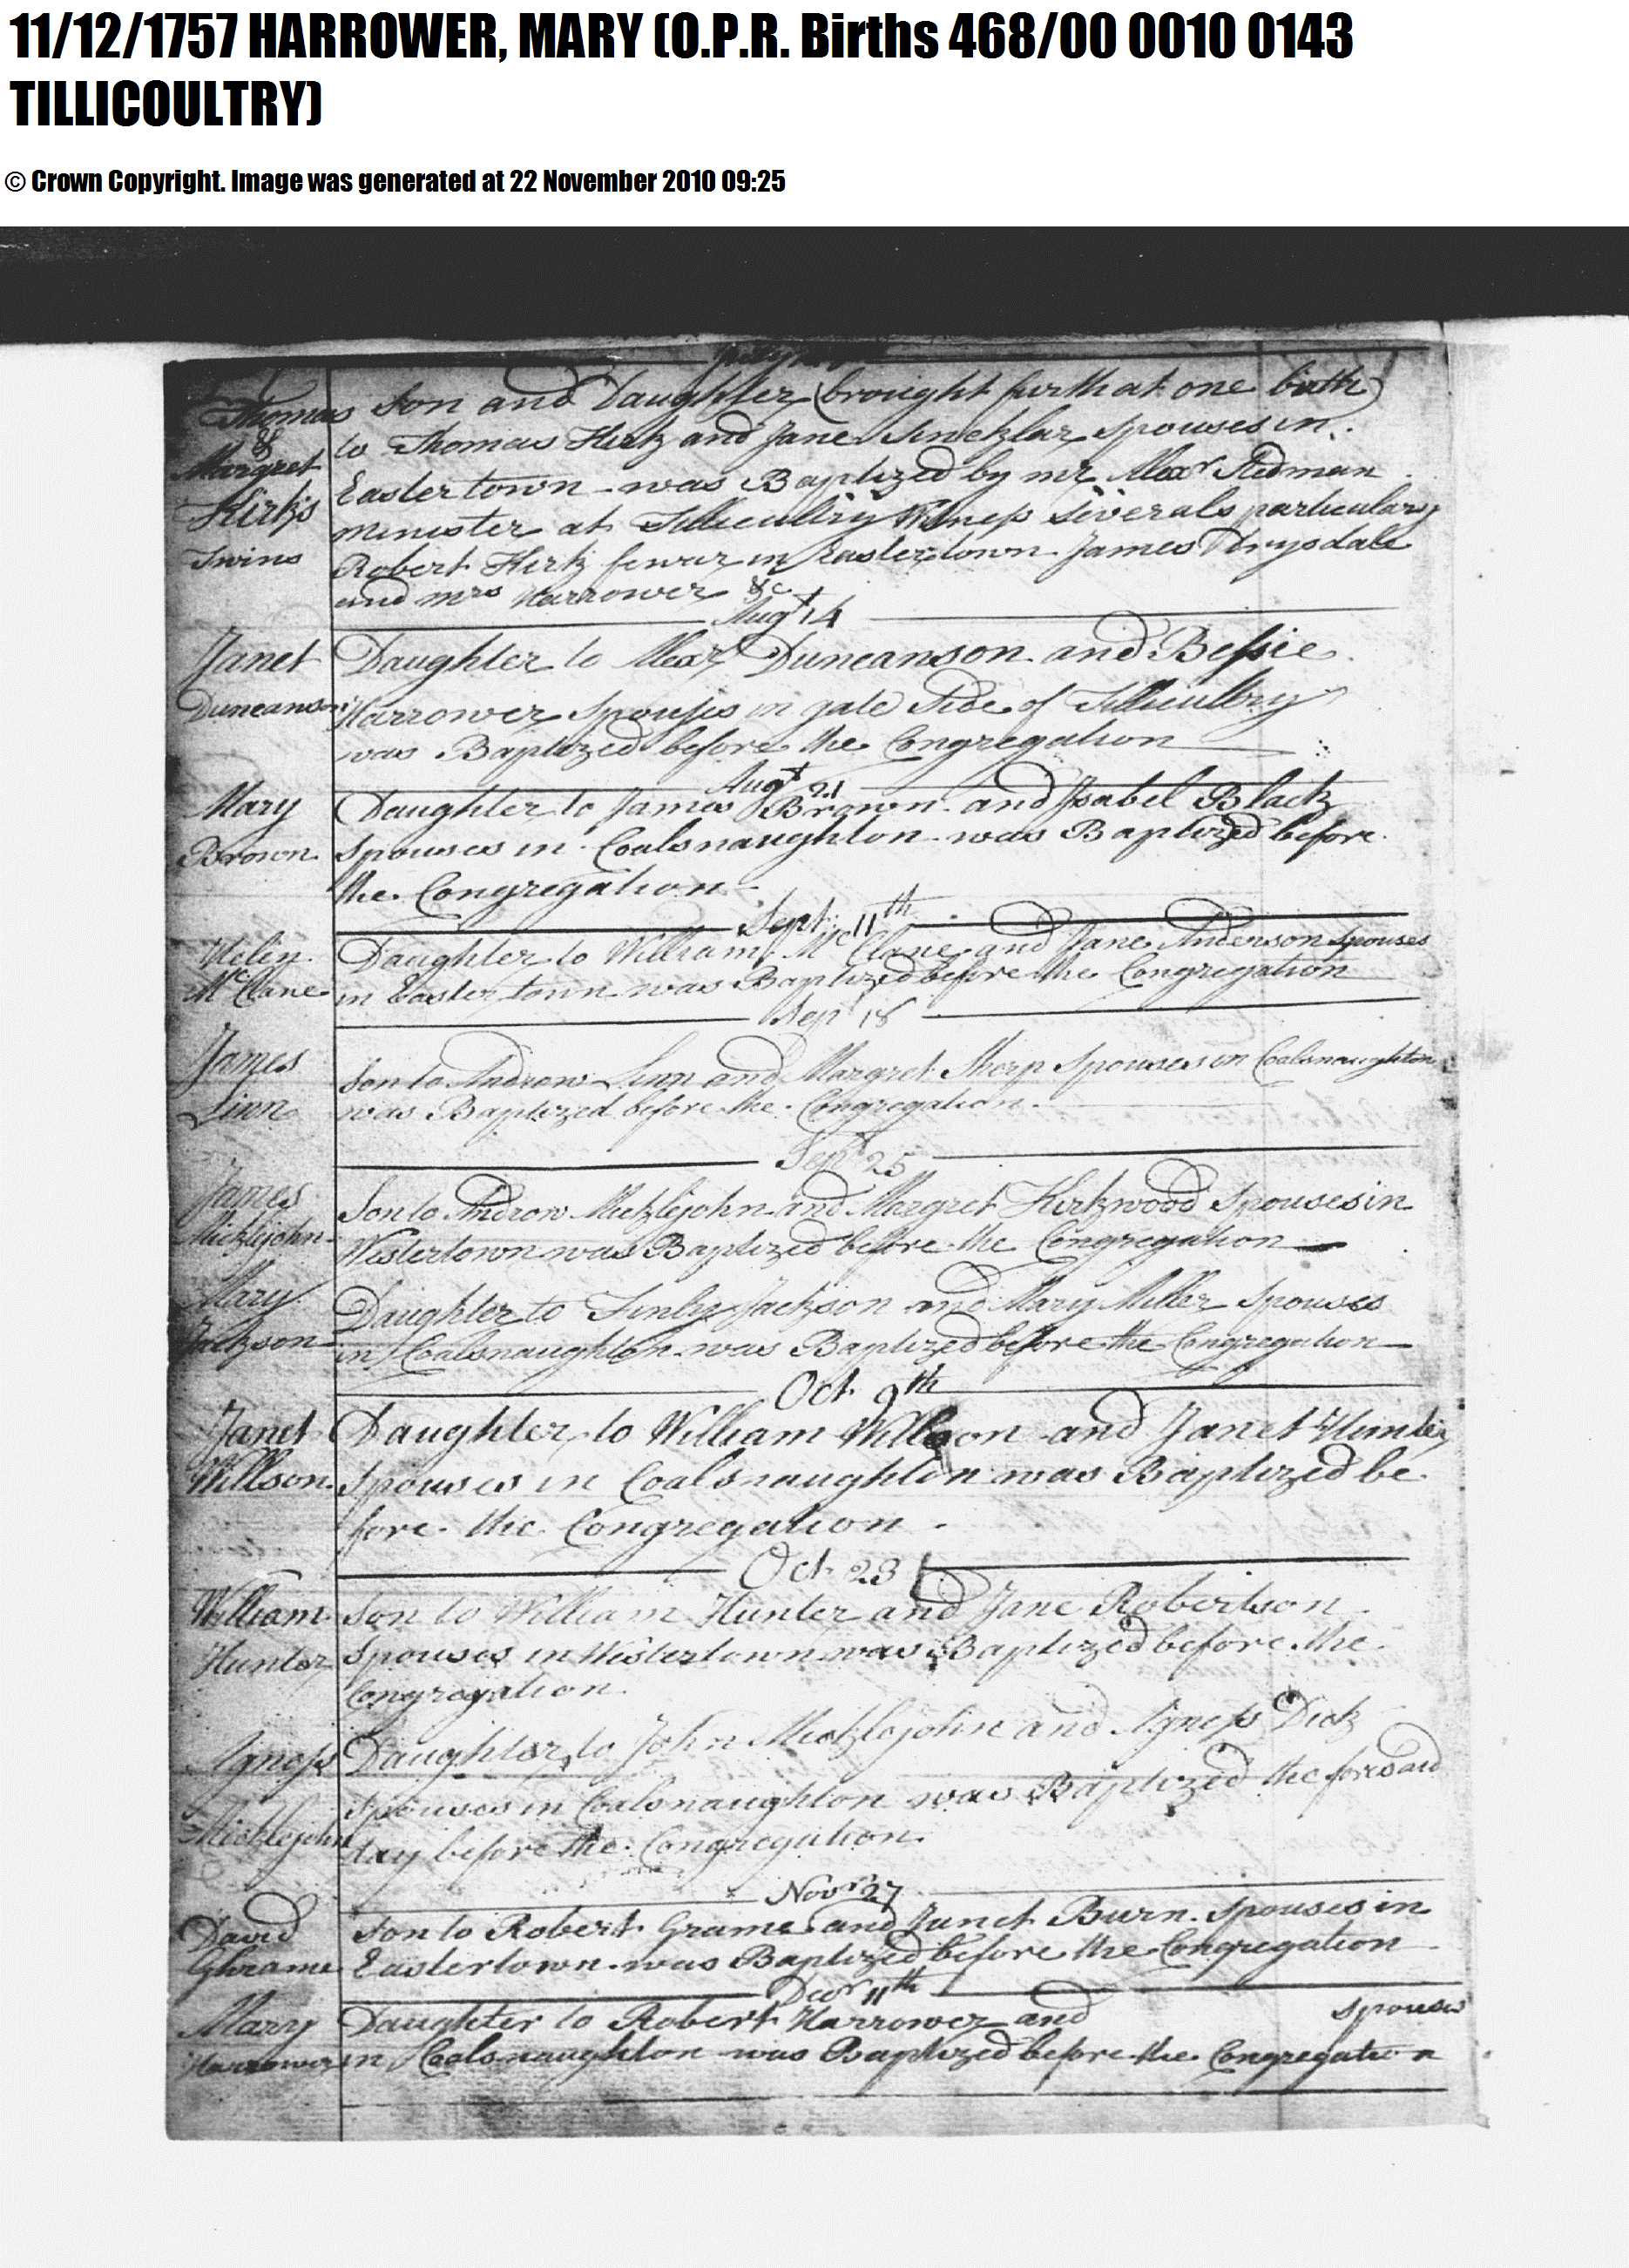 11/12/1757 HARROWER, MARY (O.P.R. Births 468/00 0010 0143
TILLICOULTRY)
© Crown Copyright. Image was generated at 22 November 2010 09:25
Thomas
&
Margret
Kirks
Twins
Son and Daughter (brought furth at one birth)
to Thomas Kirk and Jane spouses in
Eastertown was Baptized by mr Alexr Stedman
minister at Tillicultry Witness Siverals particularly
Robert Kirk fewar in Eastertown James Drysdale
and mrs Harrower &c
Augt 14
Janet
Duncanson
Daughter to Alexr Duncanson and Bessie
Harrower Spouses in gate Side of Tillicultry
was Baptized before the Congregation
Augt 21
Mary
Brown
Daughter to James Brown and Isabel Black
spouses in Coalsnaughton was Baptized before
the Congregation
Sept 11th
Helen
McClane
Daughter to William McClane and Jane Anderson spouses
in Easter town was Baptized before the Congregation
Sept 18
James
Linn
Son to Andrew Linn and Margret Sharp Spouses in Coalsnaughton
was Baptized before the Congregation
Sept 25
James
Micklejohn
Son to Andrew Micklejohn and Margret Kirkwood Spouses in
Westertown was Baptized before the Congregation
Mary
Jackson
Daughter to Finly Jackson and Mary Miller Spouses
in Coalsnaughton was Baptized before the Congregation
Oct 9th
Janet
Willson
Daughter to William Willson and Janet Hunter
spouses in Coalsnaughton was Baptized be
fore the Congregation
Oct 23
William
Hunter
Son to William Hunter and Jane Robertson
spouses in Westertown was Baptized before the
Congregation
Agness
Micklejohn
Daughter to John Micklejohn and Agness Dick
spouses in Coalsnaughton was Baptized the forsaid
day before the Congregation
Novr 27
David
Ghrame
Son to Robert Grame and Janet Burn Spouses in
Eastertown was Baptized before the Congregation
Decr 11th
Mary
Harrower
Daughter to Robert Harrower and spouses
in Coalsnaughton was Baptized before the Congregation